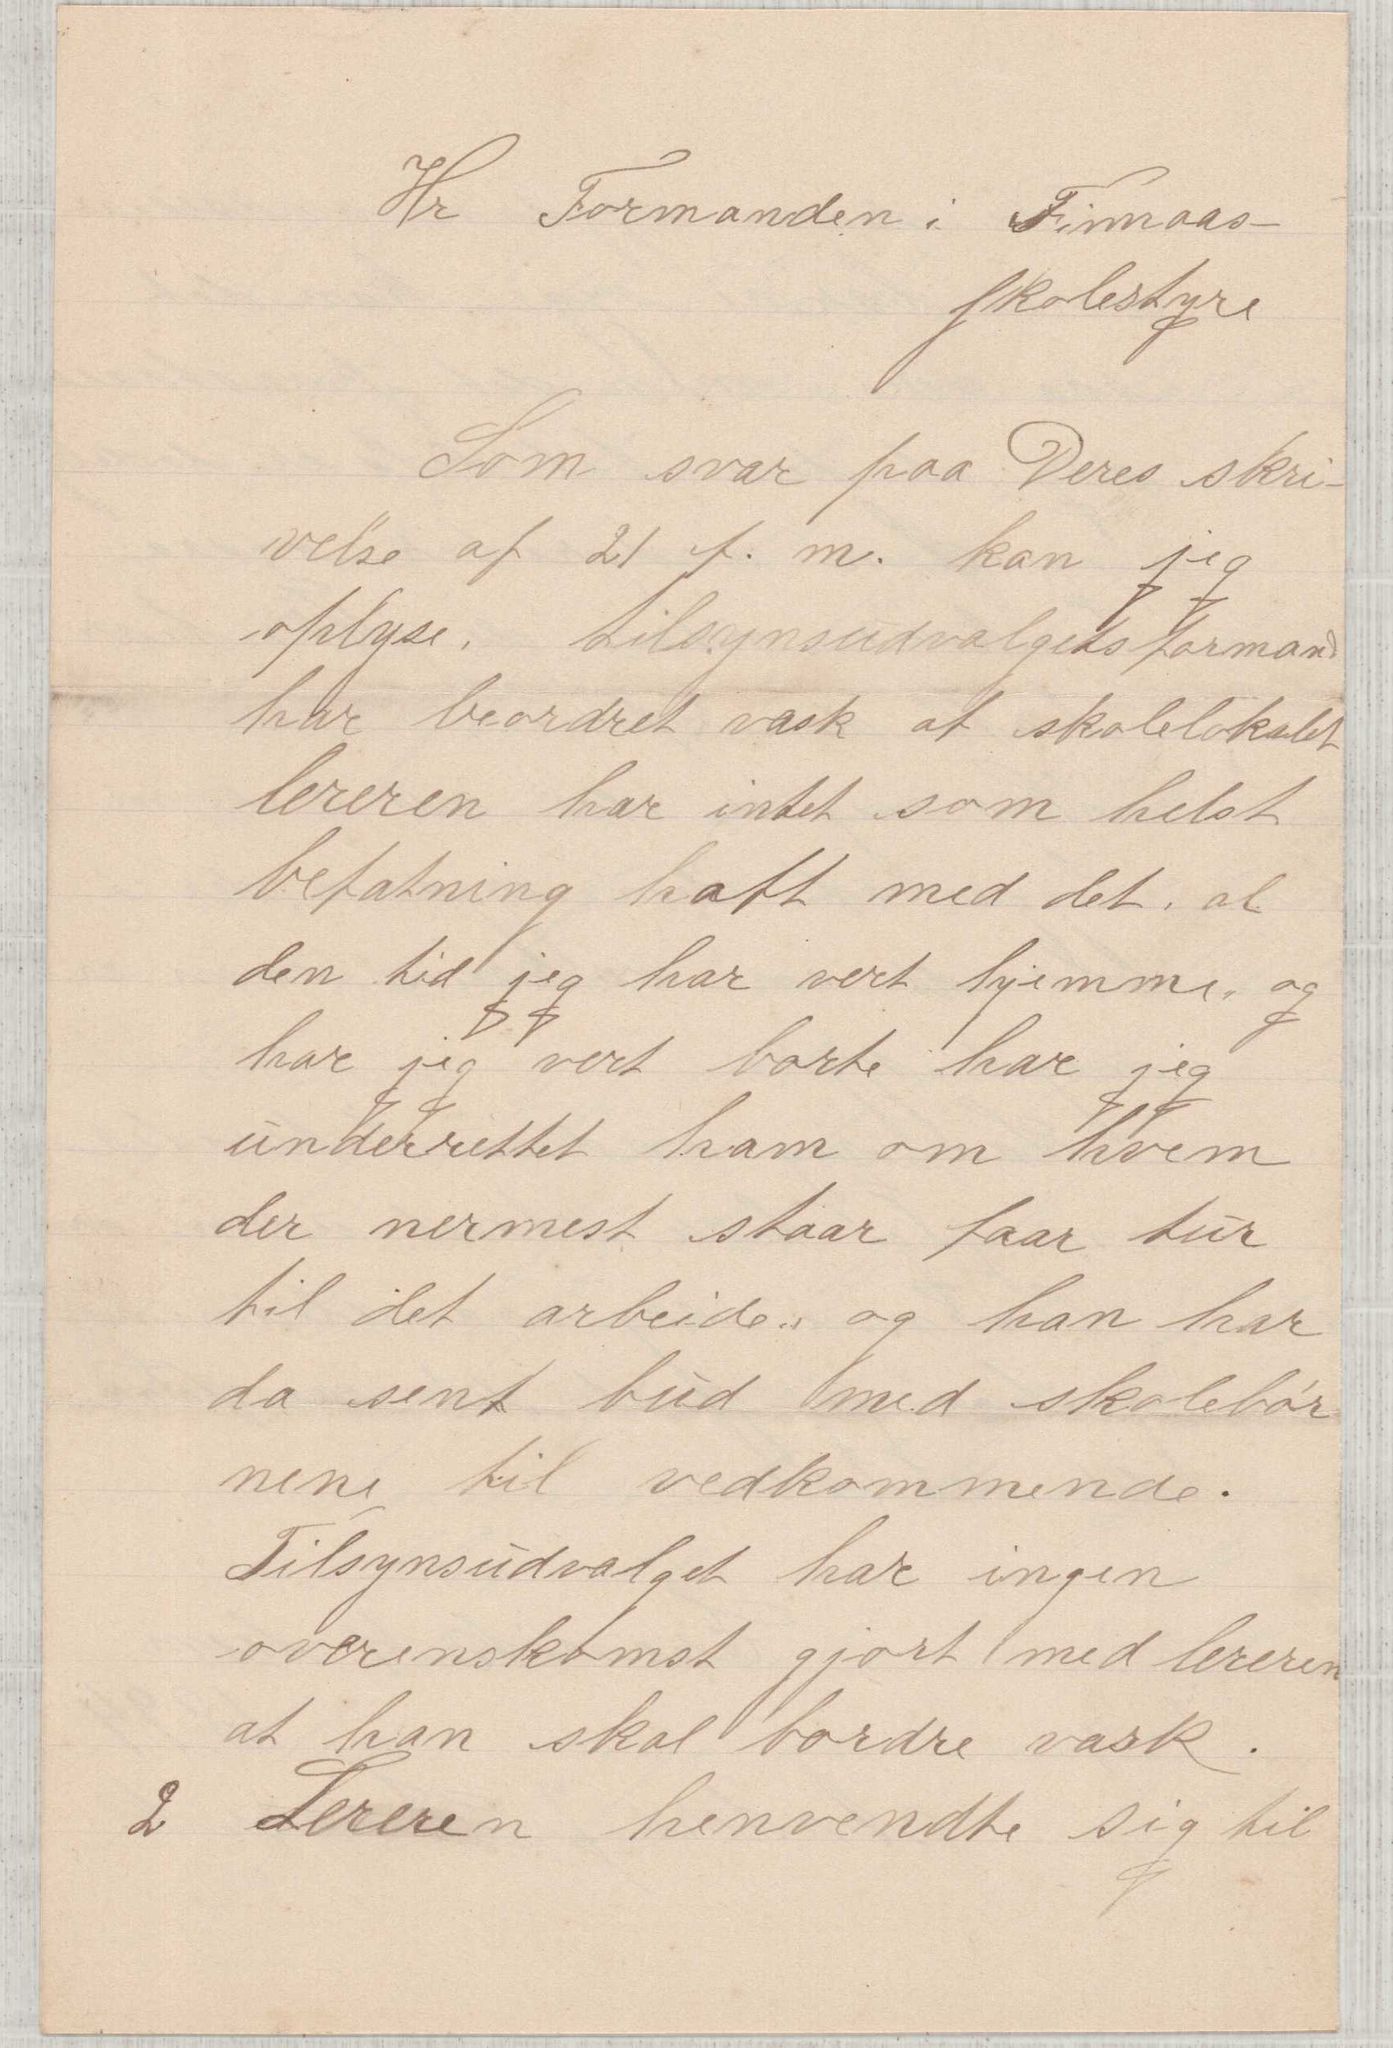 Hr Formanden i Finnaas-
skolestyre
Som svar paa Deres skri-
velse af 21 f. m. kan jeg
oplyse. tilsynsudvalgets formand
har beordret vask af skolelokalet
lereren har intet som helst
befatning haft med det. al
den tid jeg har vert hjemme. og
har jeg vert borte har jeg
underrettet ham om hvem
der nermest staar faar tur
til det arbeide. og han har
da sent bud med skolebór
nene til vedkommende.
Tilsynsudvalget har ingen
overenskomst gjort med lereren
at han skal bordre vask.
2 Lereren henvendte sig til